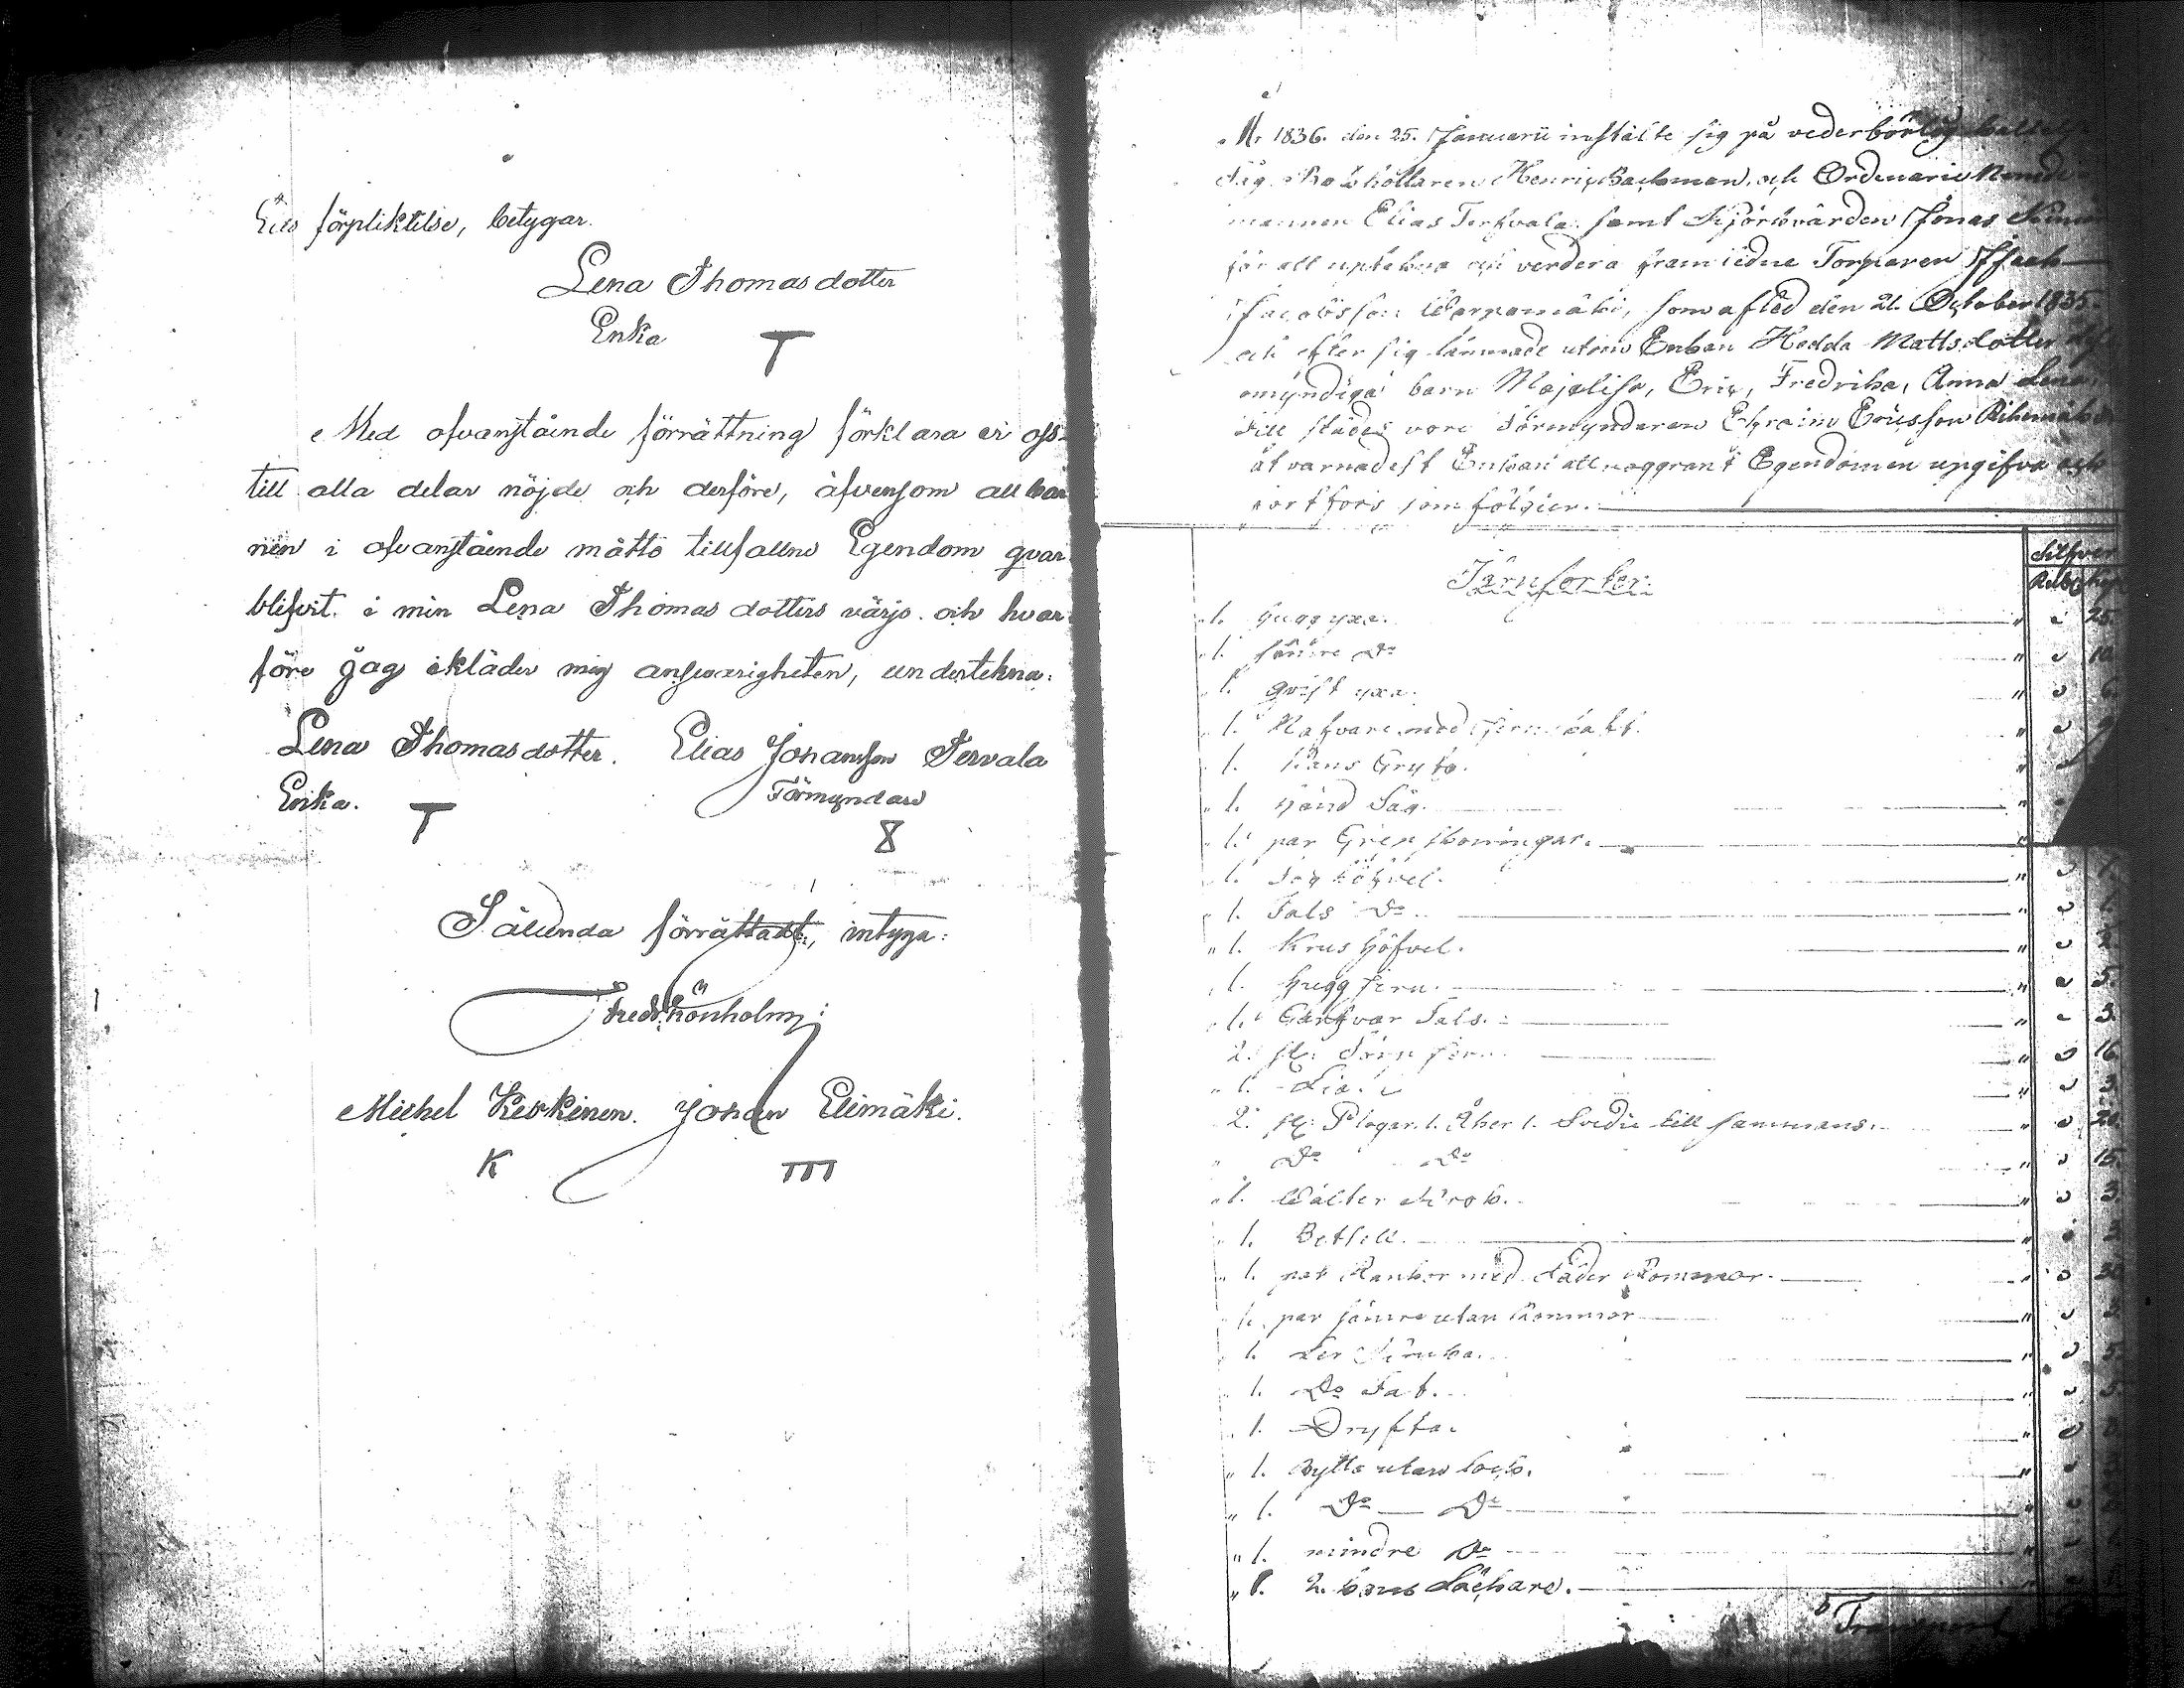 Eds förpliktelse, betygar.
Lena Thomasdotter
Enka T
Med ofvanstående förrättning förklara vi oss
till alla delar nöjde och derföre, äfvensom all bar
nen i ofvanstående måtto tillfallne Egendom qvar
blifvit i min Lena Thomasdotters värjo och hvar
före Jag ikläder mig answarigheten, undertekna:
Lena Thomasdotter. Elias Johansson Tervala
Enka. T Förmyndare
8
Sålunda förrättadt, intyga:
Fredr: Lönholm:
Michel Keskinen. Johan Elimäki.
K TTT
År 1836. den 25. Januarii instälte sig på vederbörlig
Henric Backman, och Ordinarie Nämde
mannen Elias Terfvala samt Fjördsvärden Jonas
för att uptekna och verdera framledne Torparen Isaak
Jacobsson Warpamäki, som afled den 21. October 1835.
och efter sig lämnade utom Enkan Hedda Mattsdotter
omyndiga barn Majalisa, Eric, Fredrika, Anna Lena,
Till stades vore Förmyndaren Ephraim Ericsson
åtvarnades t Enkan att noggrant Egendomen upgifva och
fortfors som följier.
Silfver
Rubl Kop
Järnsorter.
1. Hugg yxa. " " 25.
1. sämre Do " " 10.
1. Qvist yxa. " " 6.
1. Nafvare med Jern skaft. "
1. Kans Gryta. "
1. Hand Såg. "
1. par Gren skoningar. "
1. Fog Höfvel. " " 1.
1. Fals Do " " 1.
1. Krus Höfvel. " " 2.
1. Hugg Jern. " " 5.
1. Fals. " " 3.
2. st: Jern. " " 16.
1. Lia. " " 3.
2. st: Plogar. 1. Åker 1. Svedie till sammans. " " 20.
Do Do " " 15.
1. Wälter Krok. " " 3.
1. Betsell. "
1. par Rankor med Läder Rommor. " " 30
1. par sämre utan Rommor "
1. Ler Kruka. " " 5.
1. Do Fat. " " 5.
1. Dryfta. "
1. Bytta utan lock. "
1. Do Do "
1. mindre Do "
1. 2. kans Läckare.
Transport